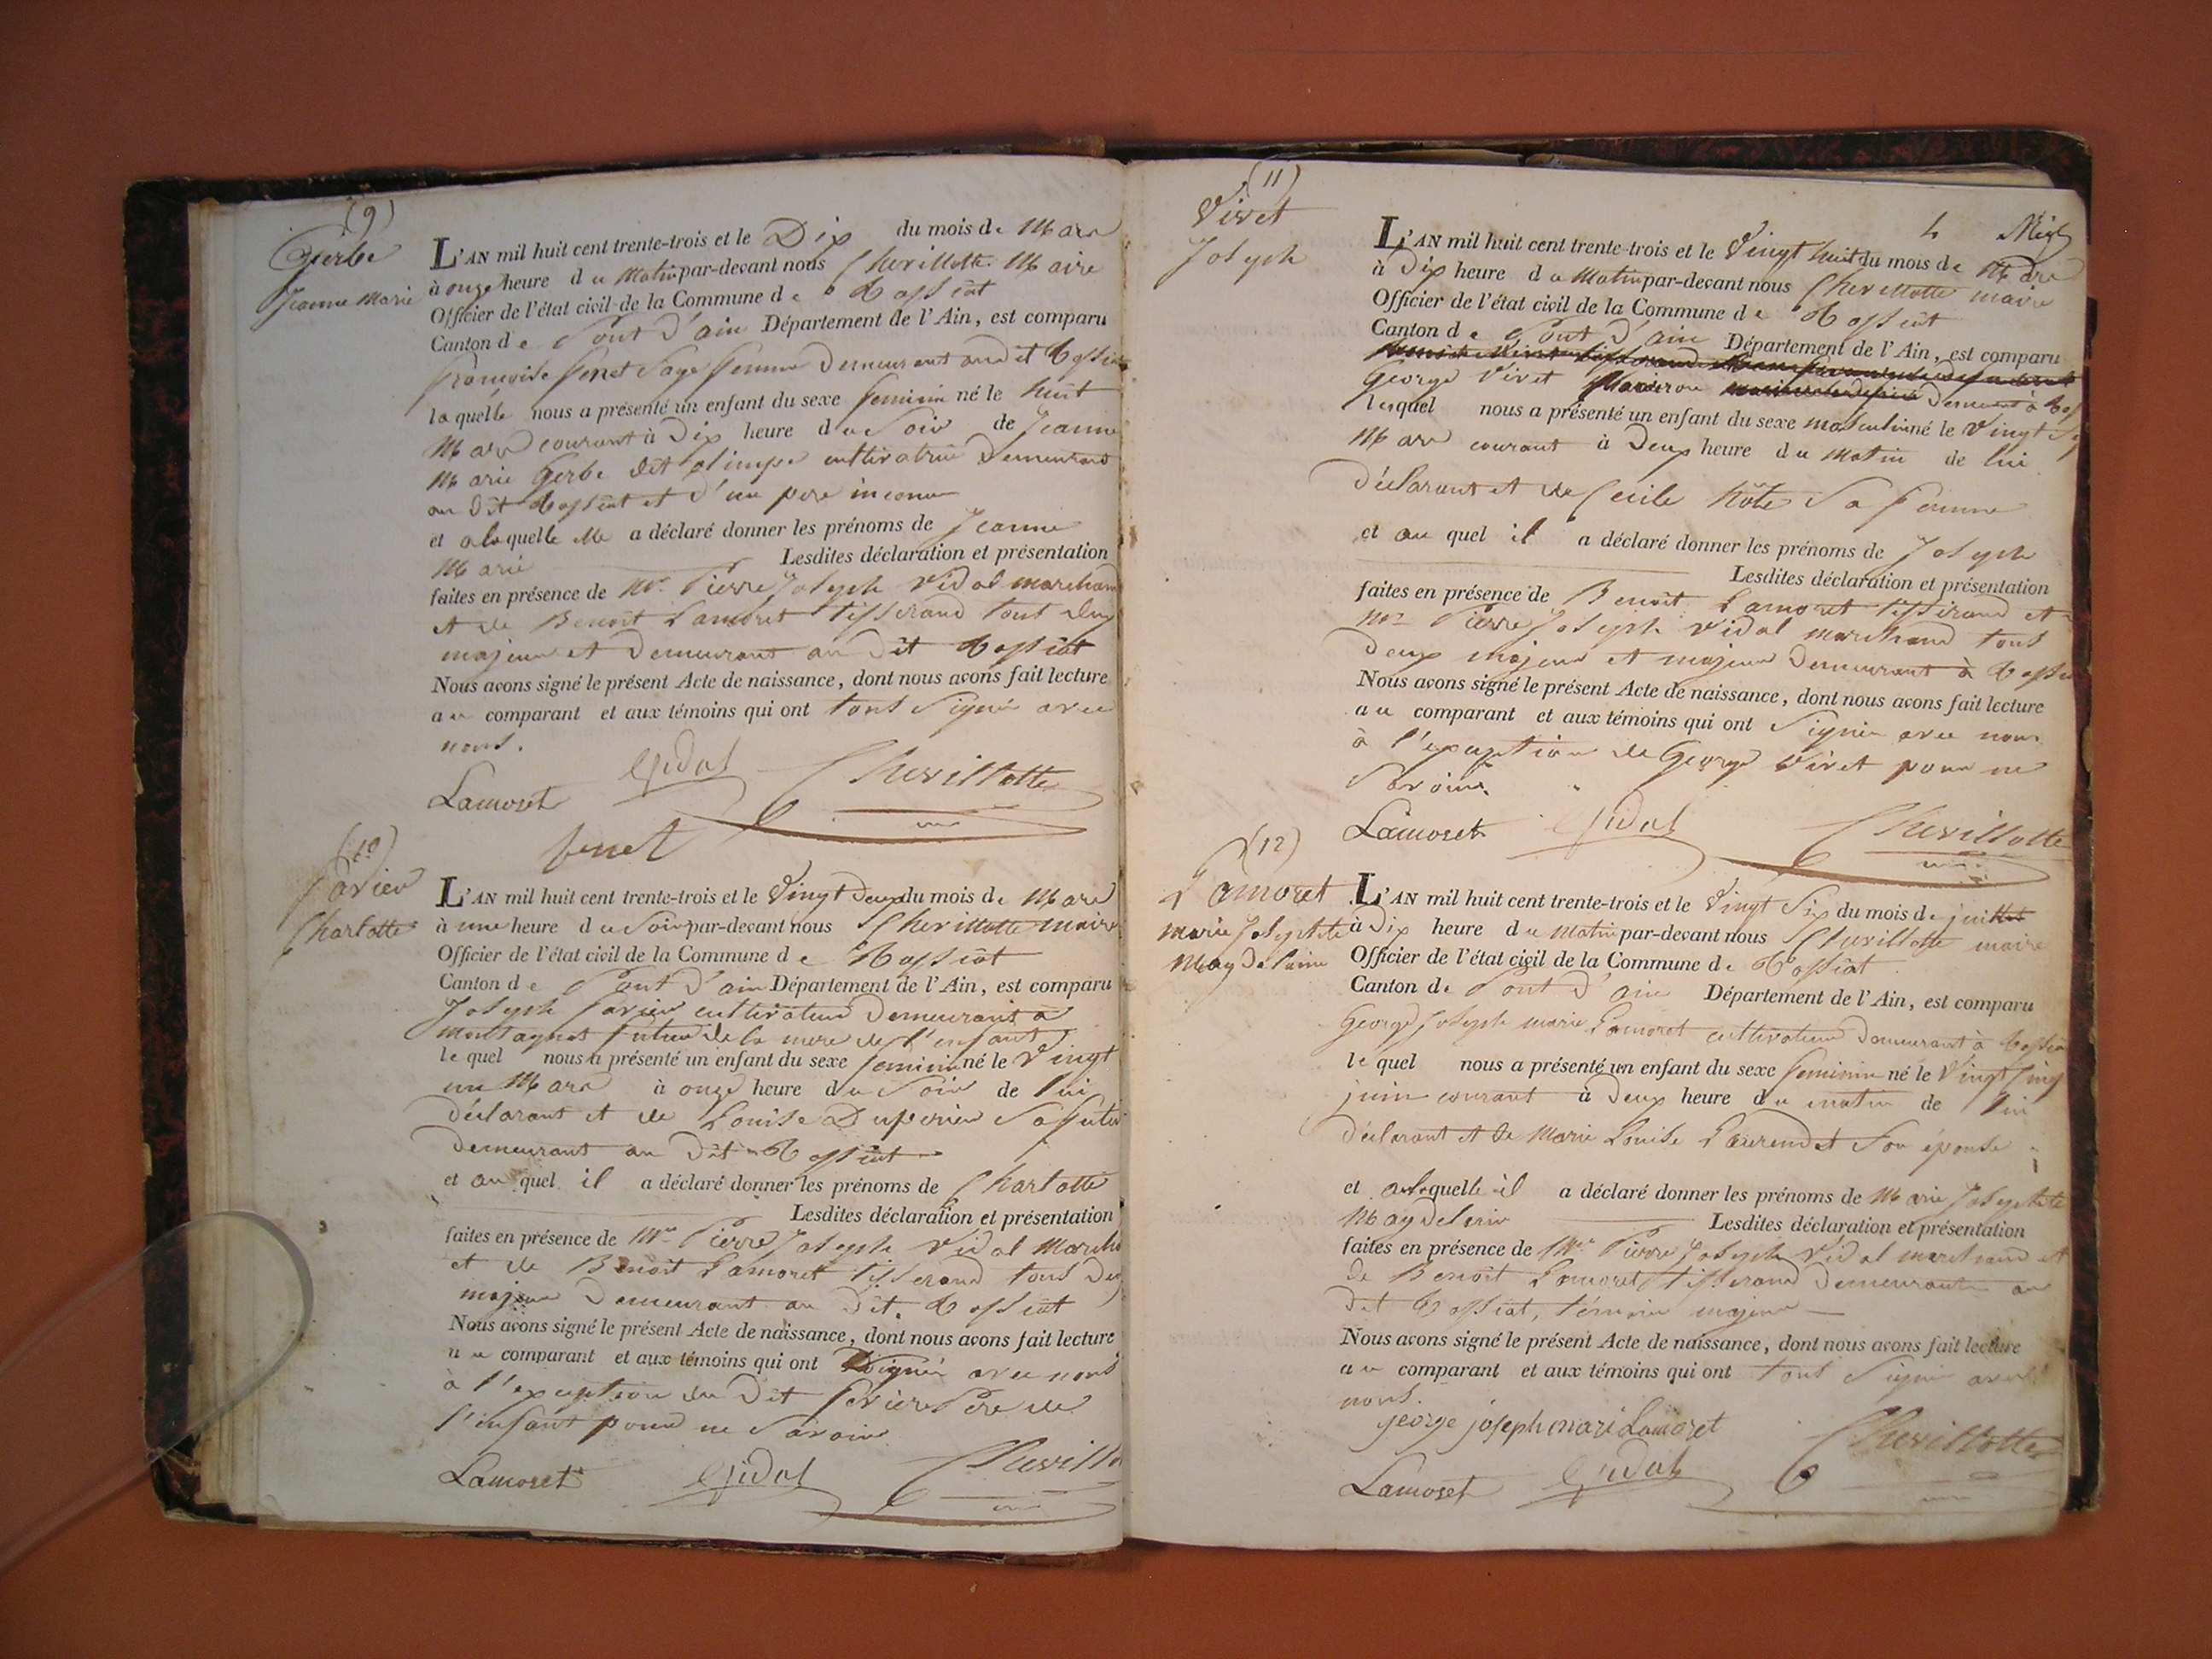 (9)
Gerbe
Jeanne Marie
L'AN mil huit cent trente-trois et le Dix du mois de Mars
à onze heure du Matin par-devant nous Chevillotte Maire
Officier de l'état civil de la Commune de Bossiat
Canton de Pont d'ain Département de l'Ain, est comparu
françoise fenet Sage femme Demeurent au dit
laquelle nous a présenté un enfant du sexe feminin né le huit
Mars courant à Dix heure du Soir de Jeanne
Marie Gerbe dit olimpe cultivatrice Demeurant
au Dit Bossiat et d'un pere inconu
et a laquelle elle a déclaré donner les prénoms de Jeanne
Marie Lesdites déclaration et présentation
faites en présence de Mr. Pierre Joseph Vidal marchand
et de Benoit Lamoret tisserand tout deux
majeur et Demeurant au Dit Bossiat
Nous avons signé le présent Acte de naissance, dont nous avons fait lecture
au comparant et aux témoins qui ont tous Signé avec
nous.
Lamoret Vidal Chevillotte
fenet
(10)
Charlotte
L'AN mil huit cent trente-trois et le Vingt Deux du mois de Mars
à une heure du Soir par-devant nous Chevillotte maire
Officier de l'état civil de la Commune de Bossiat
Canton de Pont d'ain Département de l'Ain, est comparu
Joseph cultivateur Demeurant à
de la mere de l'enfant
lequel nous a présenté un enfant du sexe feminin né le Vingt
un Mars à onze heure du Soir de lui
déclarant et de Louise Duperier Sa
demeurant au Dit Bossiat
et au quel il a déclaré donner les prénoms de Charlotte
Lesdites déclaration et présentation
faites en présence de Mr Pierre Joseph Vidal
et de Benoit Lamoret tisserand tous Deux
majeur Demeurant au Dit Bossiat
Nous avons signé le présent Acte de naissance, dont nous avons fait lecture
au comparant et aux témoins qui ont Signé avec nous
à l'exception du Dit Père de
l'enfant pour ne Savoir
Lamoret Vidal
(11)
Vivet
Joseph
4
L'AN mil huit cent trente-trois et le Vingt huit du mois de Mars
à Dix heure du Matin par-devant nous Chevillotte maire
Officier de l'état civil de la Commune de Bossiat
Canton de Pont d'ain Département de l'Ain, est comparu
George Vivet
lequel nous a présenté un enfant du sexe masculin né le Vingt
Mars courant à Deux heure du Matin de lui
déclarant et de Cecile hôte Sa femme
et au quel il a déclaré donner les prénoms de Joseph
Lesdites déclaration et présentation
faites en présence de Benoit Lamoret tisserand et
Mr Pierre Joseph Vidal marchand tous
deux majeur et majeur Demeurant à
Nous avons signé le présent Acte de naissance, dont nous avons fait lecture
au comparant et aux témoins qui ont Signé avec nous
à l'exception de George Vivet pour ne
Savoir.
Lamoret Vidal Chevillotte
(12)
Lamoret
marie Josephte
Magdelaine
L'AN mil huit cent trente-trois et le Vingt Six du mois de
à Dix heure du Matin par-devant nous Chevillotte maire
Officier de l'état civil de la Commune de Bossiat
Canton de Pont d'ain Département de l'Ain, est comparu
George Joseph marie Lamoret cultivateur demeurant à
lequel nous a présenté un enfant du sexe feminin né le Vingt Cinq
juin courant à Deux heure du matin de lui
déclarant et de Marie Louise Son épouse
et a laquelle il a déclaré donner les prénoms de Marie Josephte
Lesdites déclaration et présentation
faites en présence de Mr Pierre Joseph Vidal marchand et
de Benoit Lamoret tisserand Demeurant au
dit Bossiat, témoins majeur
Nous avons signé le présent Acte de naissance, dont nous avons fait lecture
au comparant et aux témoins qui ont tous Signé avec
nous.
george joseph marie Lamoret Chevillotte
Lamoret Vidal